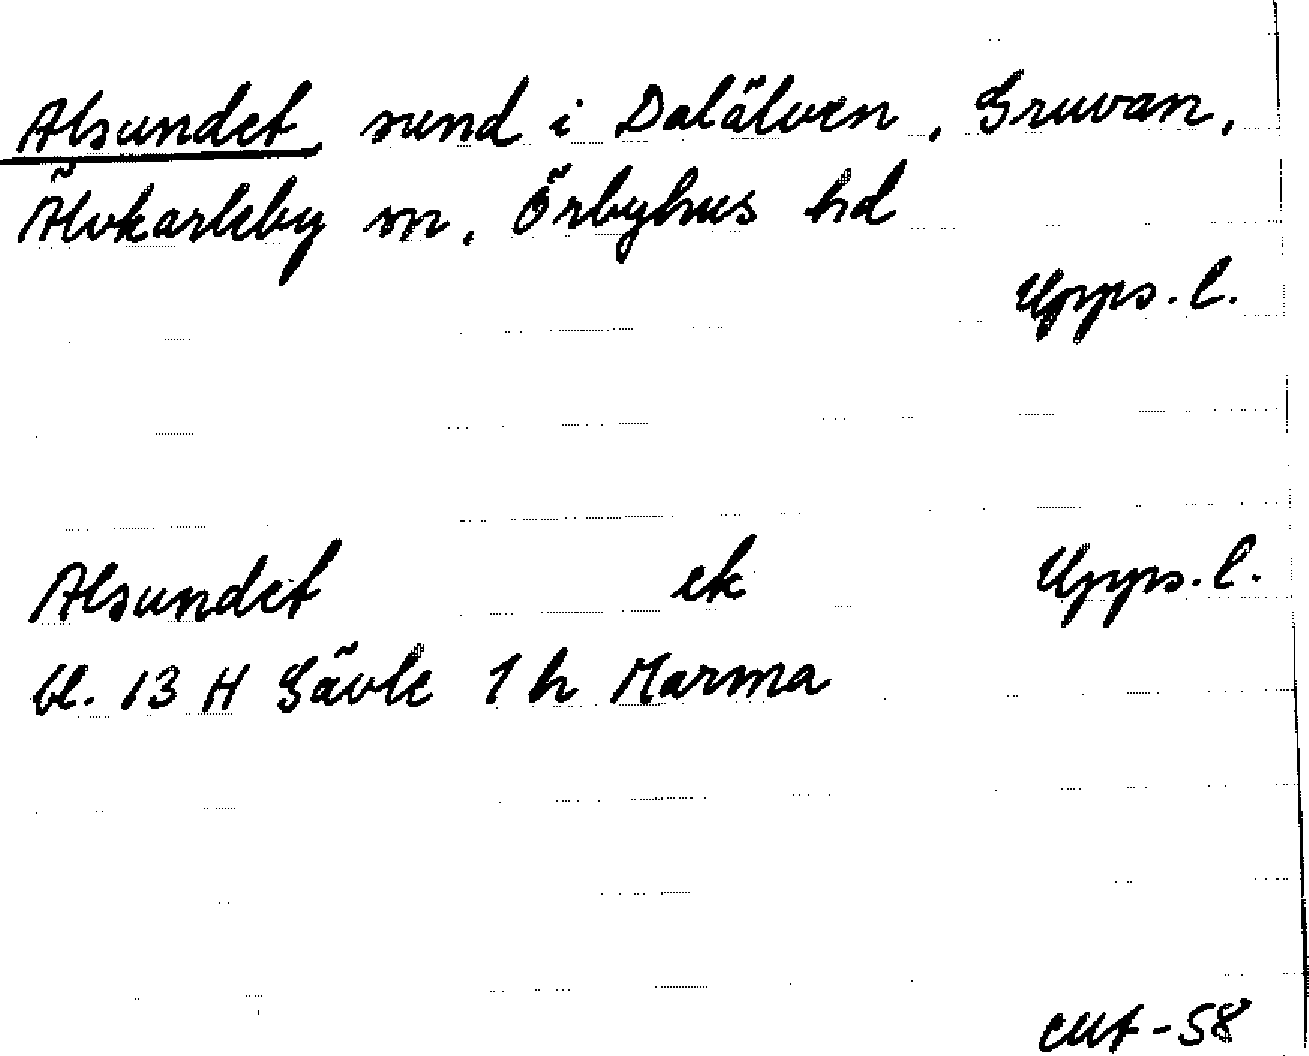 Alsundet, sund i Dalälven, Gruvan,
Älvkarleby sn, Örbyhus hd
Upps. l.
Alsundet ek Upps. l.
bl. 13 H Gävle 1 h Marma
-58